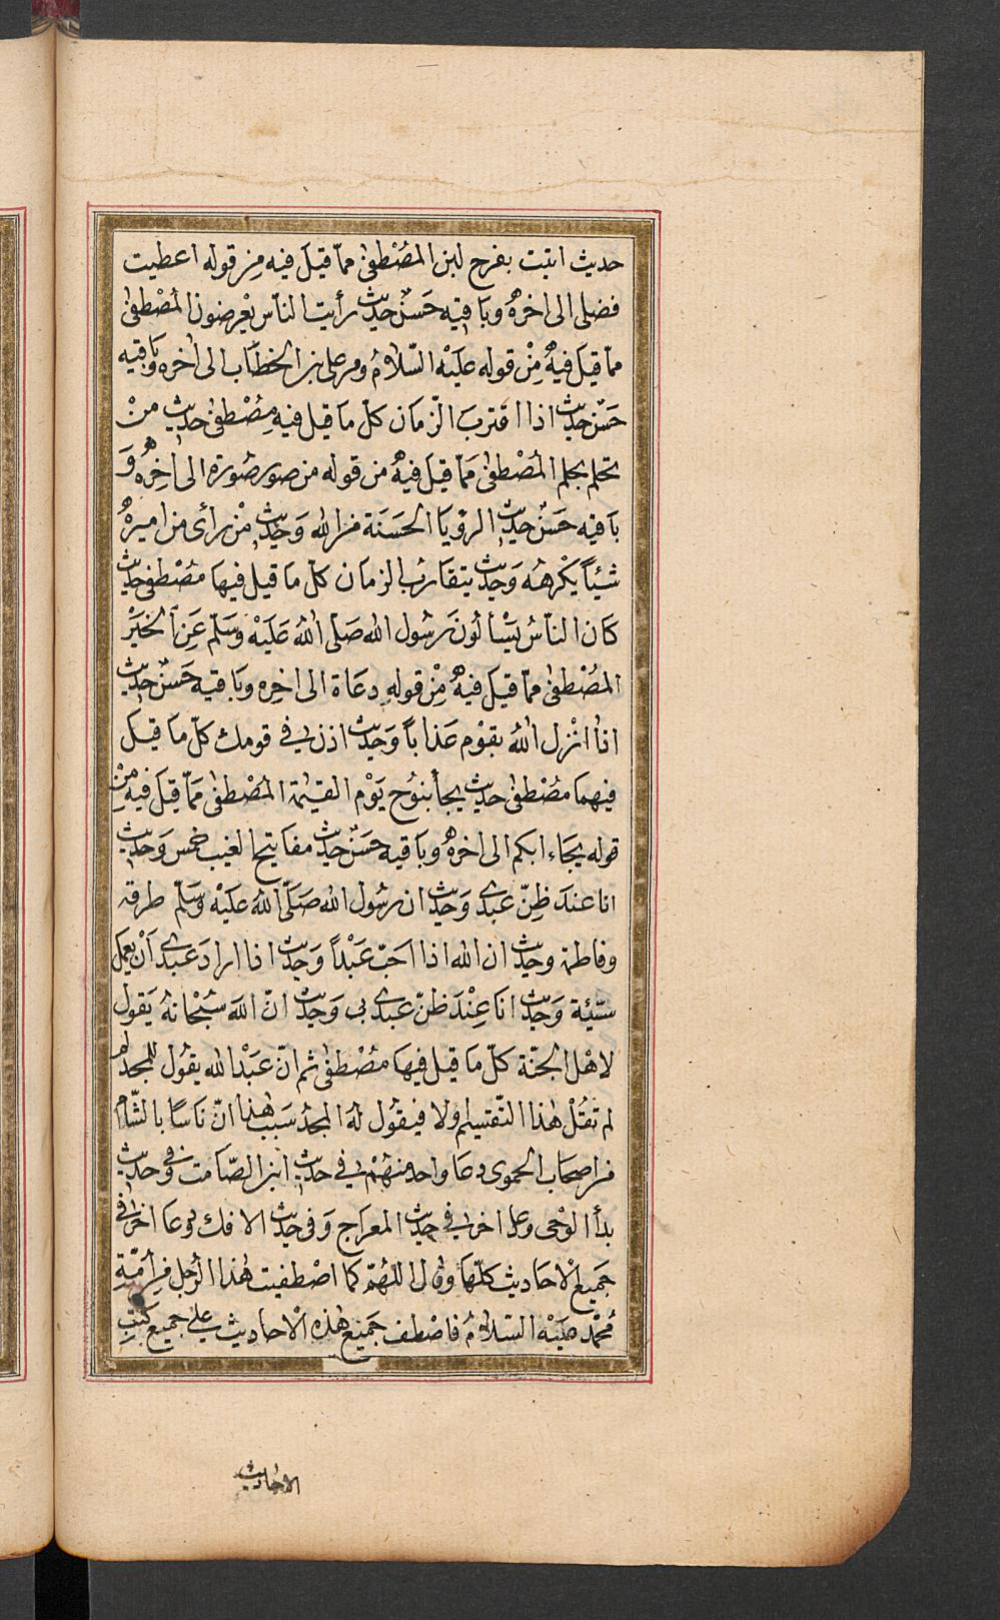 حديث اتيت بقدح لبن المصطفى ممّا قيل فيه من قوله اعطيت
فضلى الى اخرهٖ وباقيه حَسَنٌ حديث رأيت الناس يعرضون المصطفى
ممّا قيل فيهِ مِنْ قوله عليْه السّلام ومر على بن الخطّاب الى اخره وباقيه
حَسَنٌ حديث اذا اقترب الزمان كلّ ما قيل فيه مصْطفى حديث منْ
تحلم بحلم المصْطفى ممّا قيل فيهِ من قوله من صور صُورة الى اخِرِهٖ وَ
باقيه حَسَنٌ حديث الرؤيا الحَسَنَة من الله وَحديث مْن رأى من اميرهٖ
شيْئاً يكْرهُه وَحديث يتقارب الزمان كلّ ما قيل فيها مصْطفى حديث
كان الناسُ يَسْألونَ رسُول الله صَلّى اللهُ عَليْهْ وَسَلّم عَنِ الْخَيْر
المصُطفى ممّا قيل فيهِ مِنْ قوله دعَاة الى اخِره وبَاقيه حَسَنٌ حديث
اذا انْزل اللهُ بقوْم عَذاباً وَحديث اذن فى قومك كلّ ما قيل
فيهما مصْطفى حديث يجأ بنوُح يوْم القيٰمة المصْطفى ممّا قيل فيه منْ
قوله يجَاء ابكم الى اخرهٖ وباقيه حَسَنٌ حديث مفاتيح الغيب خمس وَحديث
انا عندَ ظِنّ عبدى وَحديث ان رسُول الله صَلّى اللهُ عليْهْ وَسَلّم طرقه
وفاطمة وحديث ان الله اذا احَبّ عَبْداً وَحديث اذا ارادَ عبدى اَنْ يعمل
سيّئة وَحديث انَا عِنْدَ ظنّ عبدى بى وَحديث انّ اللهَ سُبْحانهُ يَقول
لاهْل الجنّة كلّ ما قيل فيها مصْطفى ثم انّ عَبْد الله يقُول للمجد لو
لم تقُلْ هٰذا التّقسيم اولا فيقُول لهُ المجدُ سَبب هٰذا انّ ناسًا بالشّام
من اصحاب الحموى دعَا واحد منهُمْ فى حديث ابن الصّامت وفى حديث
بدأ الوَحى وعا اخر فى حديث المعراج وَفى حديث الافك ودعا اخر فى
جَميع الْاحَاديث كلّها وقال اللهُمّ كما اصْطفيت هٰذا الرجل من اُمّة
مُحمّد عليْه السّلام فاصْطف جَميْع هٰذه الْاحاديث على جميع كتبِ
الاحاديث